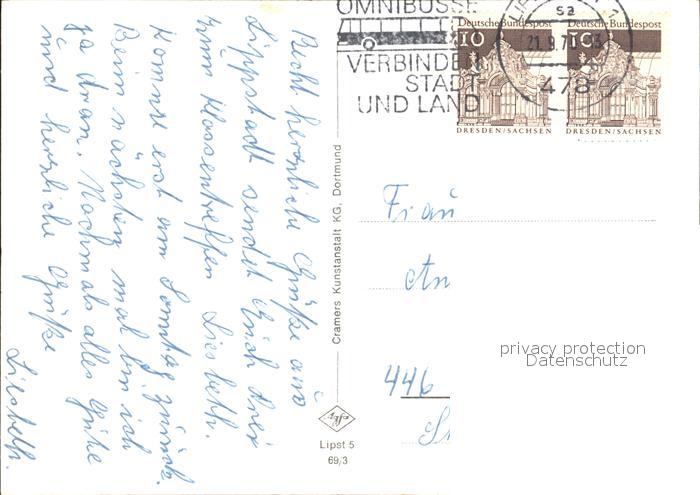 Recht herzliche Grüße aus
Lippstadt sendet Euch Drei
zum Klassentreffen Liesbeth.
Komme erst am Sonntag zurück.
Beim nächsten mal bin ich
ja dran. Nochmals alles Gute
und herzliche Grüße
Liesbeth.
Cramers Kunstanstalt KG, Dortmund
Lipst 5
69/3
OMNIBUSSE
VERBINDEN
STADT
UND LAND
21.9.70
478
Deutsche Bundespost
10
DRESDEN/SACHSEN
Deutsche Bundespost
10
DRESDEN/SACHSEN
Frau
An
446
privacy protection
Datenschutz